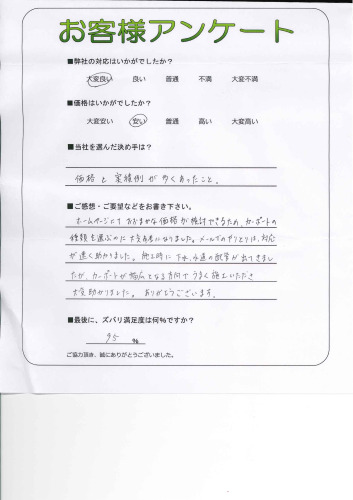 お客様アンケート
■弊社の対応はいかがでしたか？
大変良い 良い 普通 不満 大変不満
■価格はいかがでしたか？
大変安い 安い 普通 高い 大変高い
■当社を選んだ決め手は？
価格と実績例が多くあったこと。
■ご感想・ご要望などをお書き下さい。
ホームページにておおまかな価格が検討できるため、カーポートの
種類を選ぶのに大変参考になりました。メールでのやりとりは、対応
が速く助かりました。施工時に下水、水道の配管が出てきまし
たが、カーポートが幅広となる方向でうまく施工いただき
大変助かりました。ありがとうございます。
■最後に、ズバリ満足度は何％ですか？
95 ％
ご協力頂き、誠にありがとうございました。